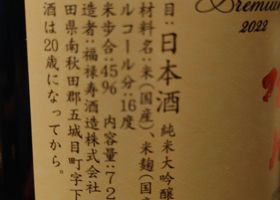 Premium
2022
目：日本酒 純米大吟醸
材料名：米（国産）、米麹（国
ルコール分：16度
米歩合：45％ 内容量：72
造者：福禄寿酒造株式会社
田県南秋田郡五城目町字下
酒は20歳になってから。